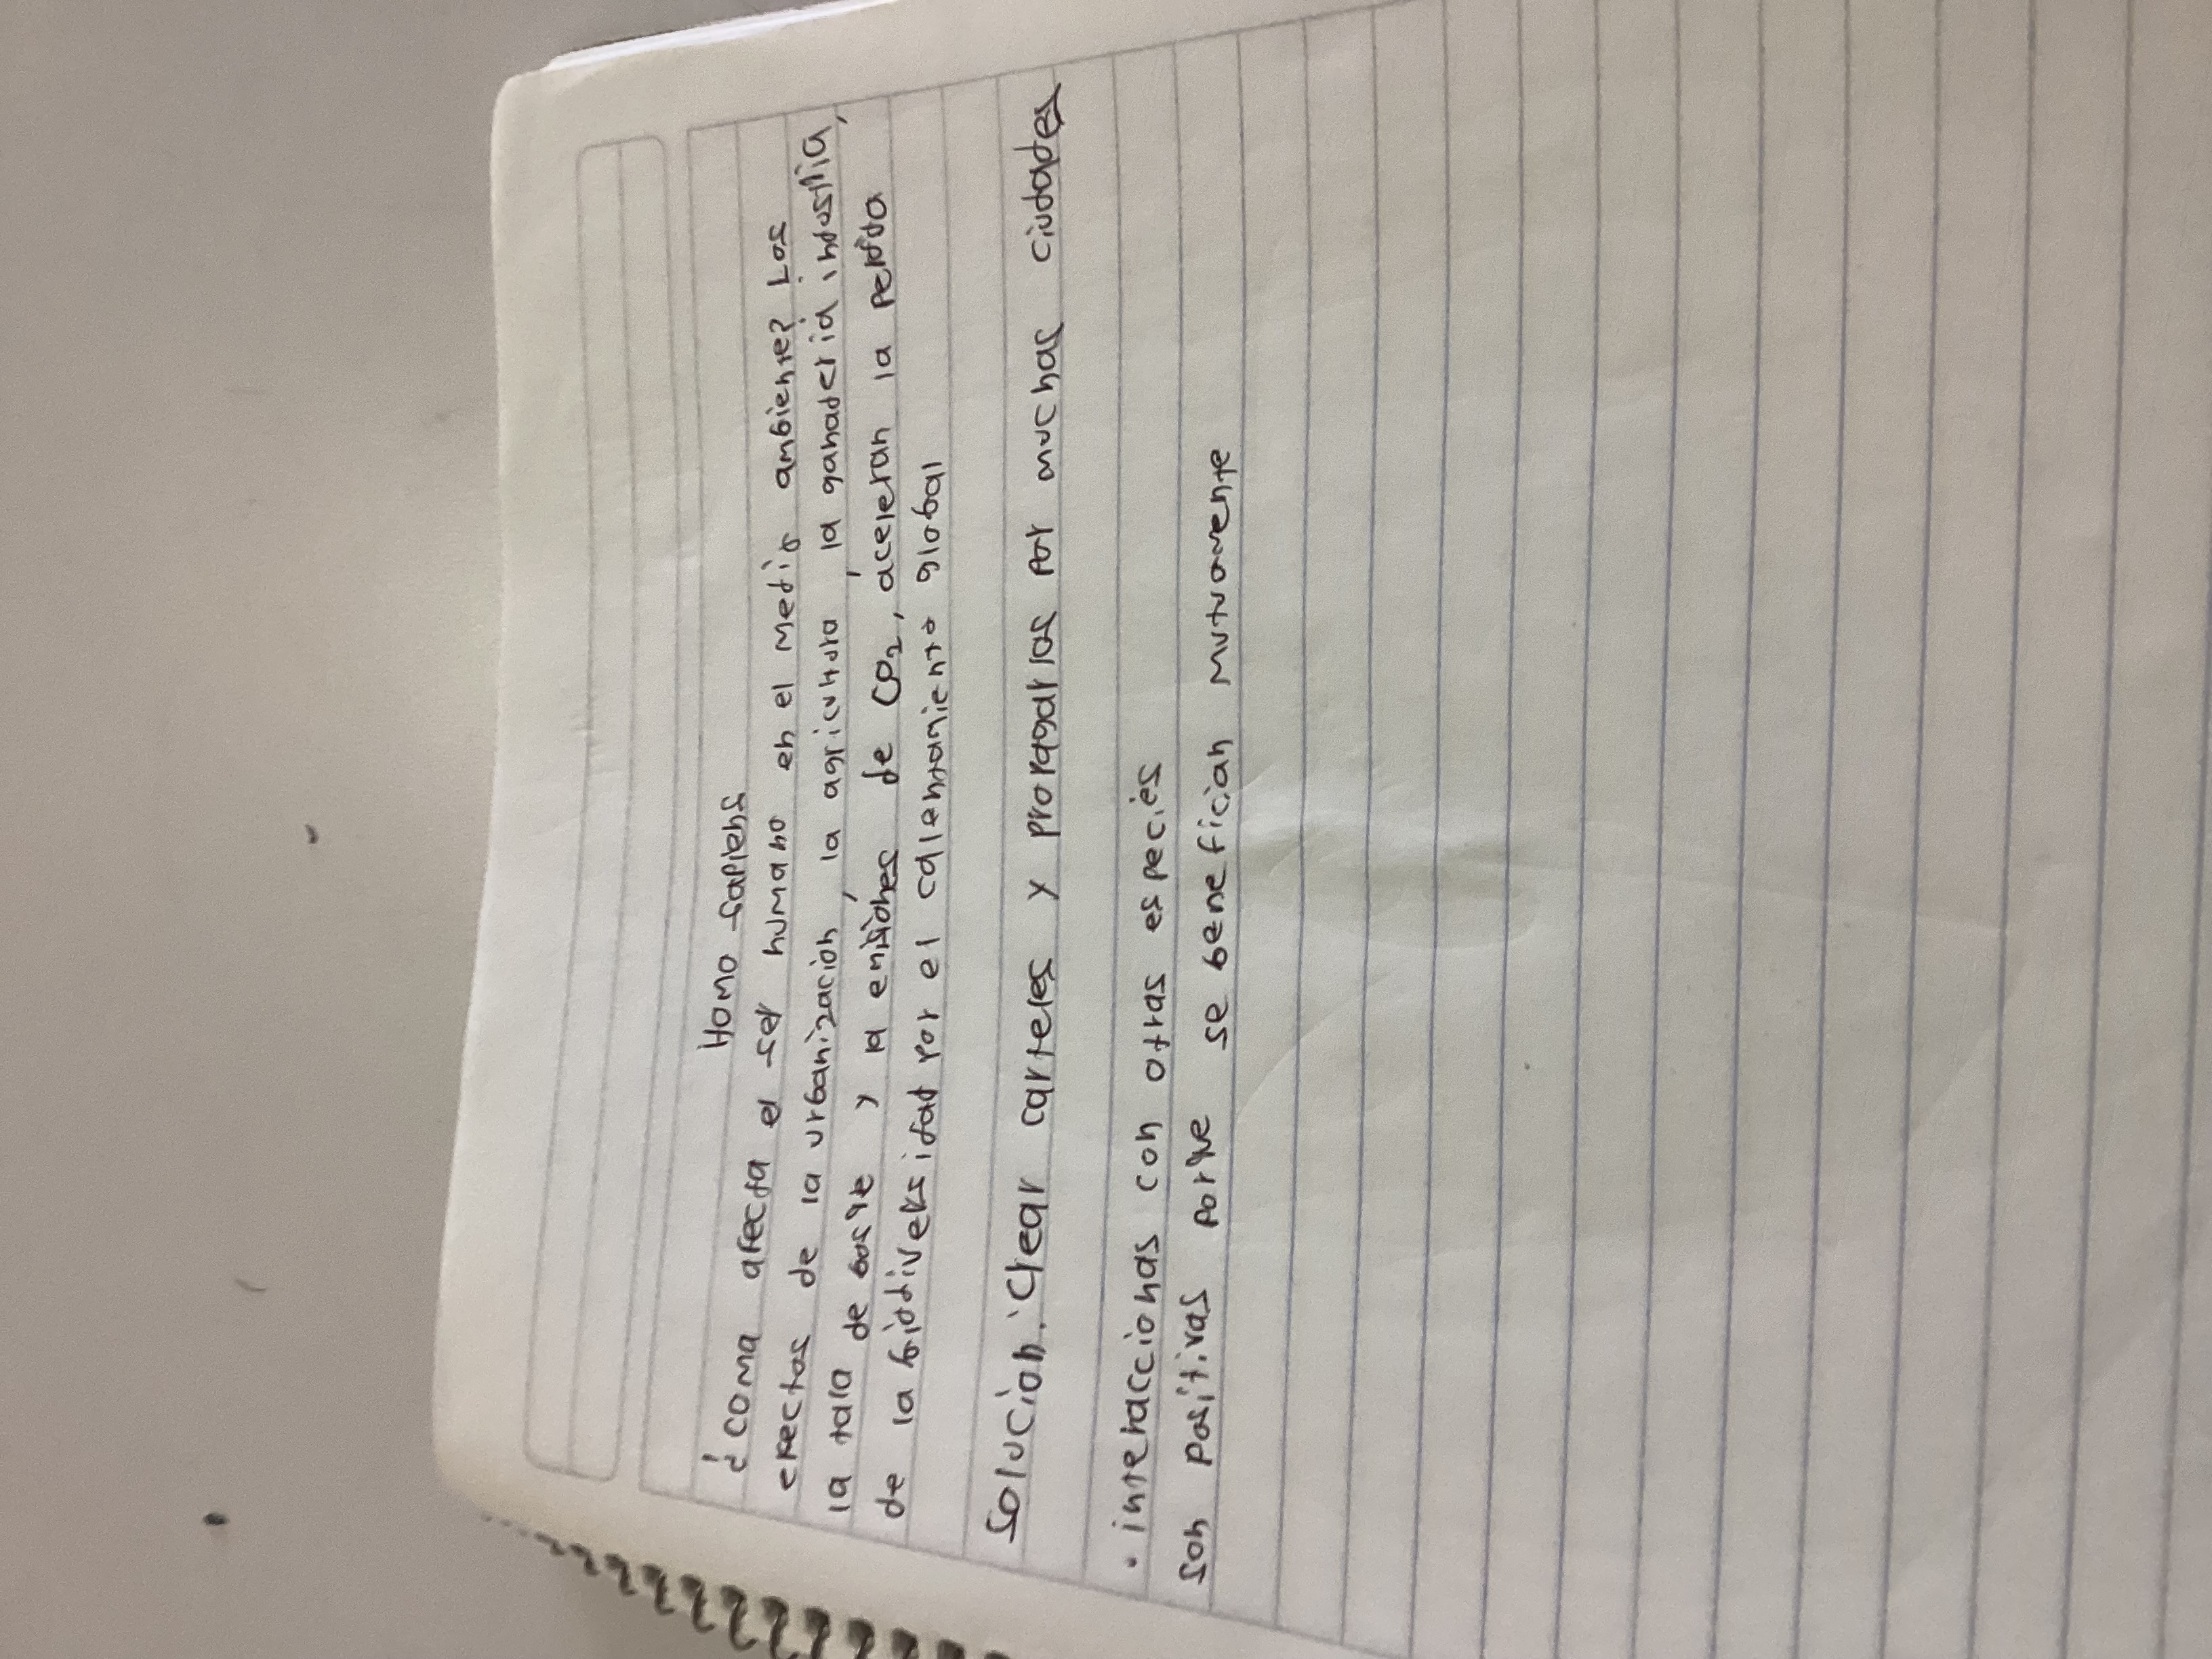 Homo sapiens
¿Coma afecta el ser humano en el medio ambiente? Los
efectos de la urbanización, la agricultura, la ganaderia industria,
la tala de bosque y la emisiones de CO2, aceleran la perdida
de la biodiversidad por el calentamiento global
Solución: Crear carteles y propagarlos por muchas ciudades
• interaccionas con otras especies
son positivas porque se benefician mutuamente